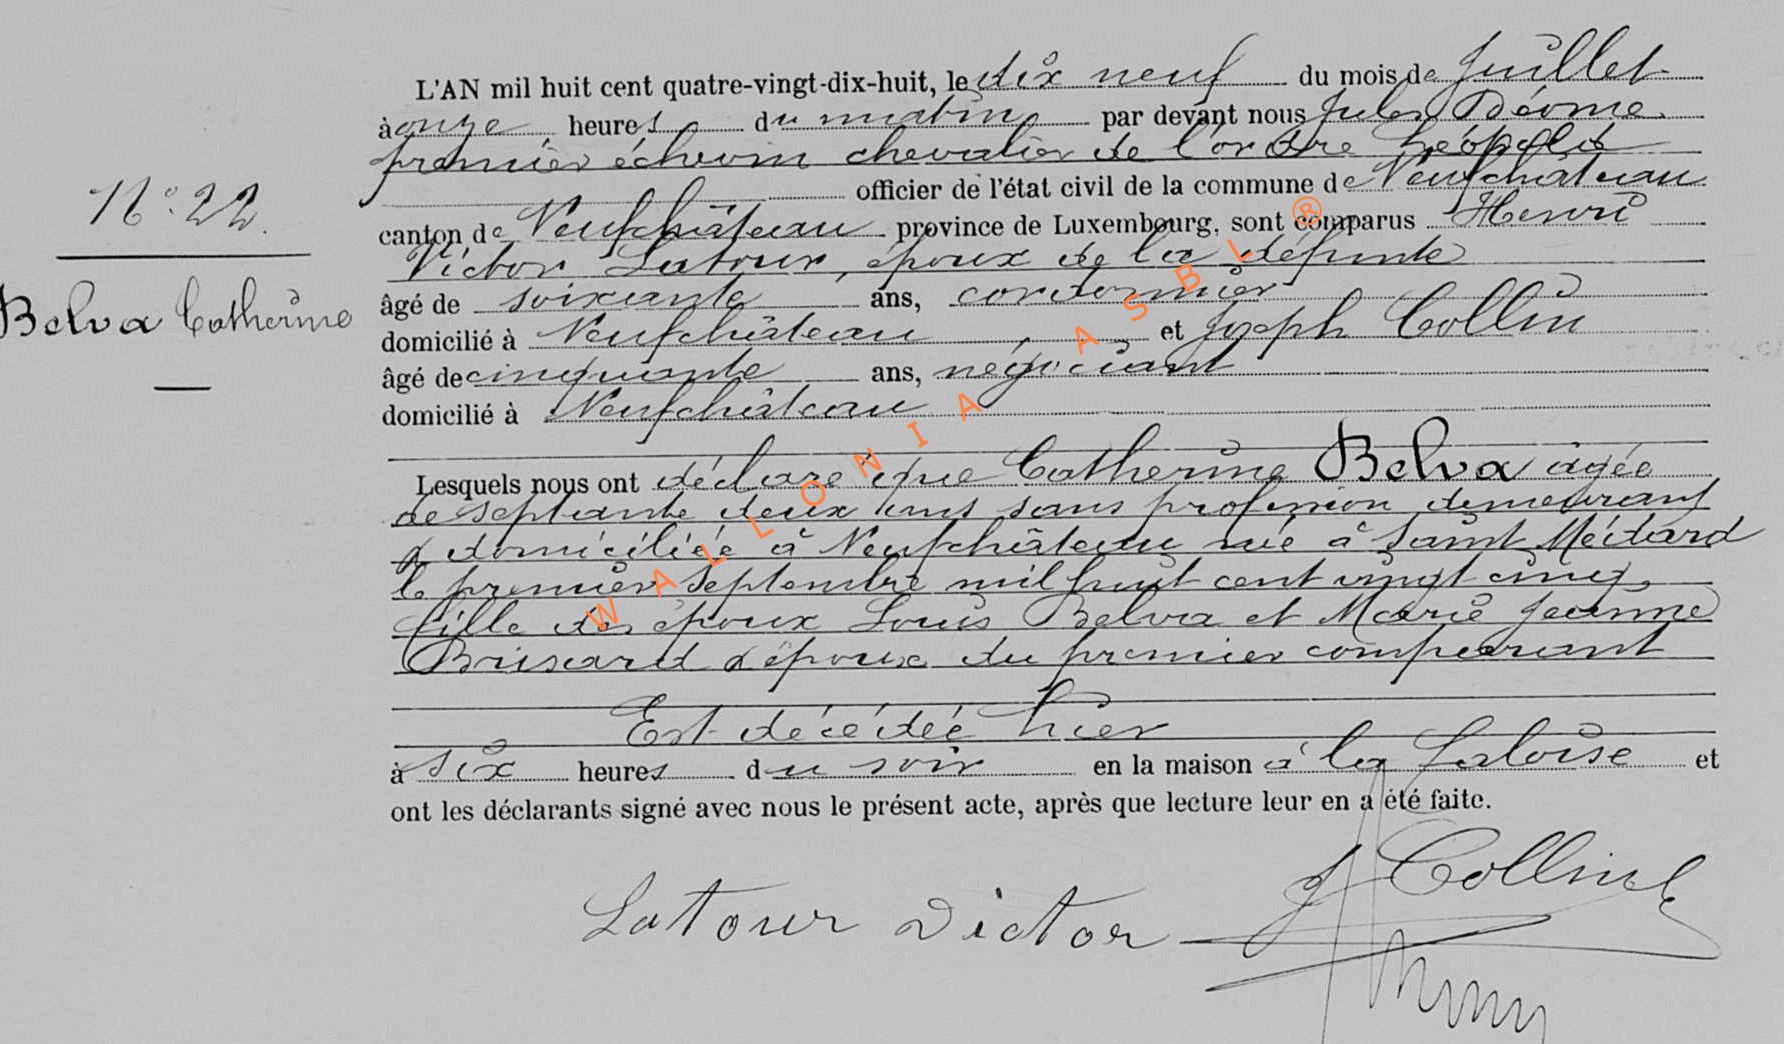 L'AN mil huit cent quatre-vingt-dix-huit, le dix neuf du mois de Juillet
à onze heures du matin par devant nous Jules
premier échevin chevalier de l'ordre Léopold
officier de l'état civil de la commune de Neufchâteau
N° 22.
canton de Neufchâteau province de Luxembourg, sont comparus Henri
Victor Latour, époux de la défunte
âgé de soixante ans, cordonnier
Belva Catherine
domicilié à Neufchâteau et Joseph Collin
âgé de cinquante ans, négociant
domicilié à Neufchâteau
Lesquels nous ont déclaré que Catherine Belva agée
de septante deux ans sans profession demeurant
& domiciliée à Neufchâteau née à Saint Médard
le premier Septembre mil huit cent vingt cinq,
fille des époux Louis Belva et Marie Jeanne
Brisard & épouse du premier comparant
Est décédée hier
à six heures du soir en la maison à la et
ont les déclarants signé avec nous le présent acte, après que lecture leur en a été faite.
Latour Victor J Collin
WALLONIA ASBL ®